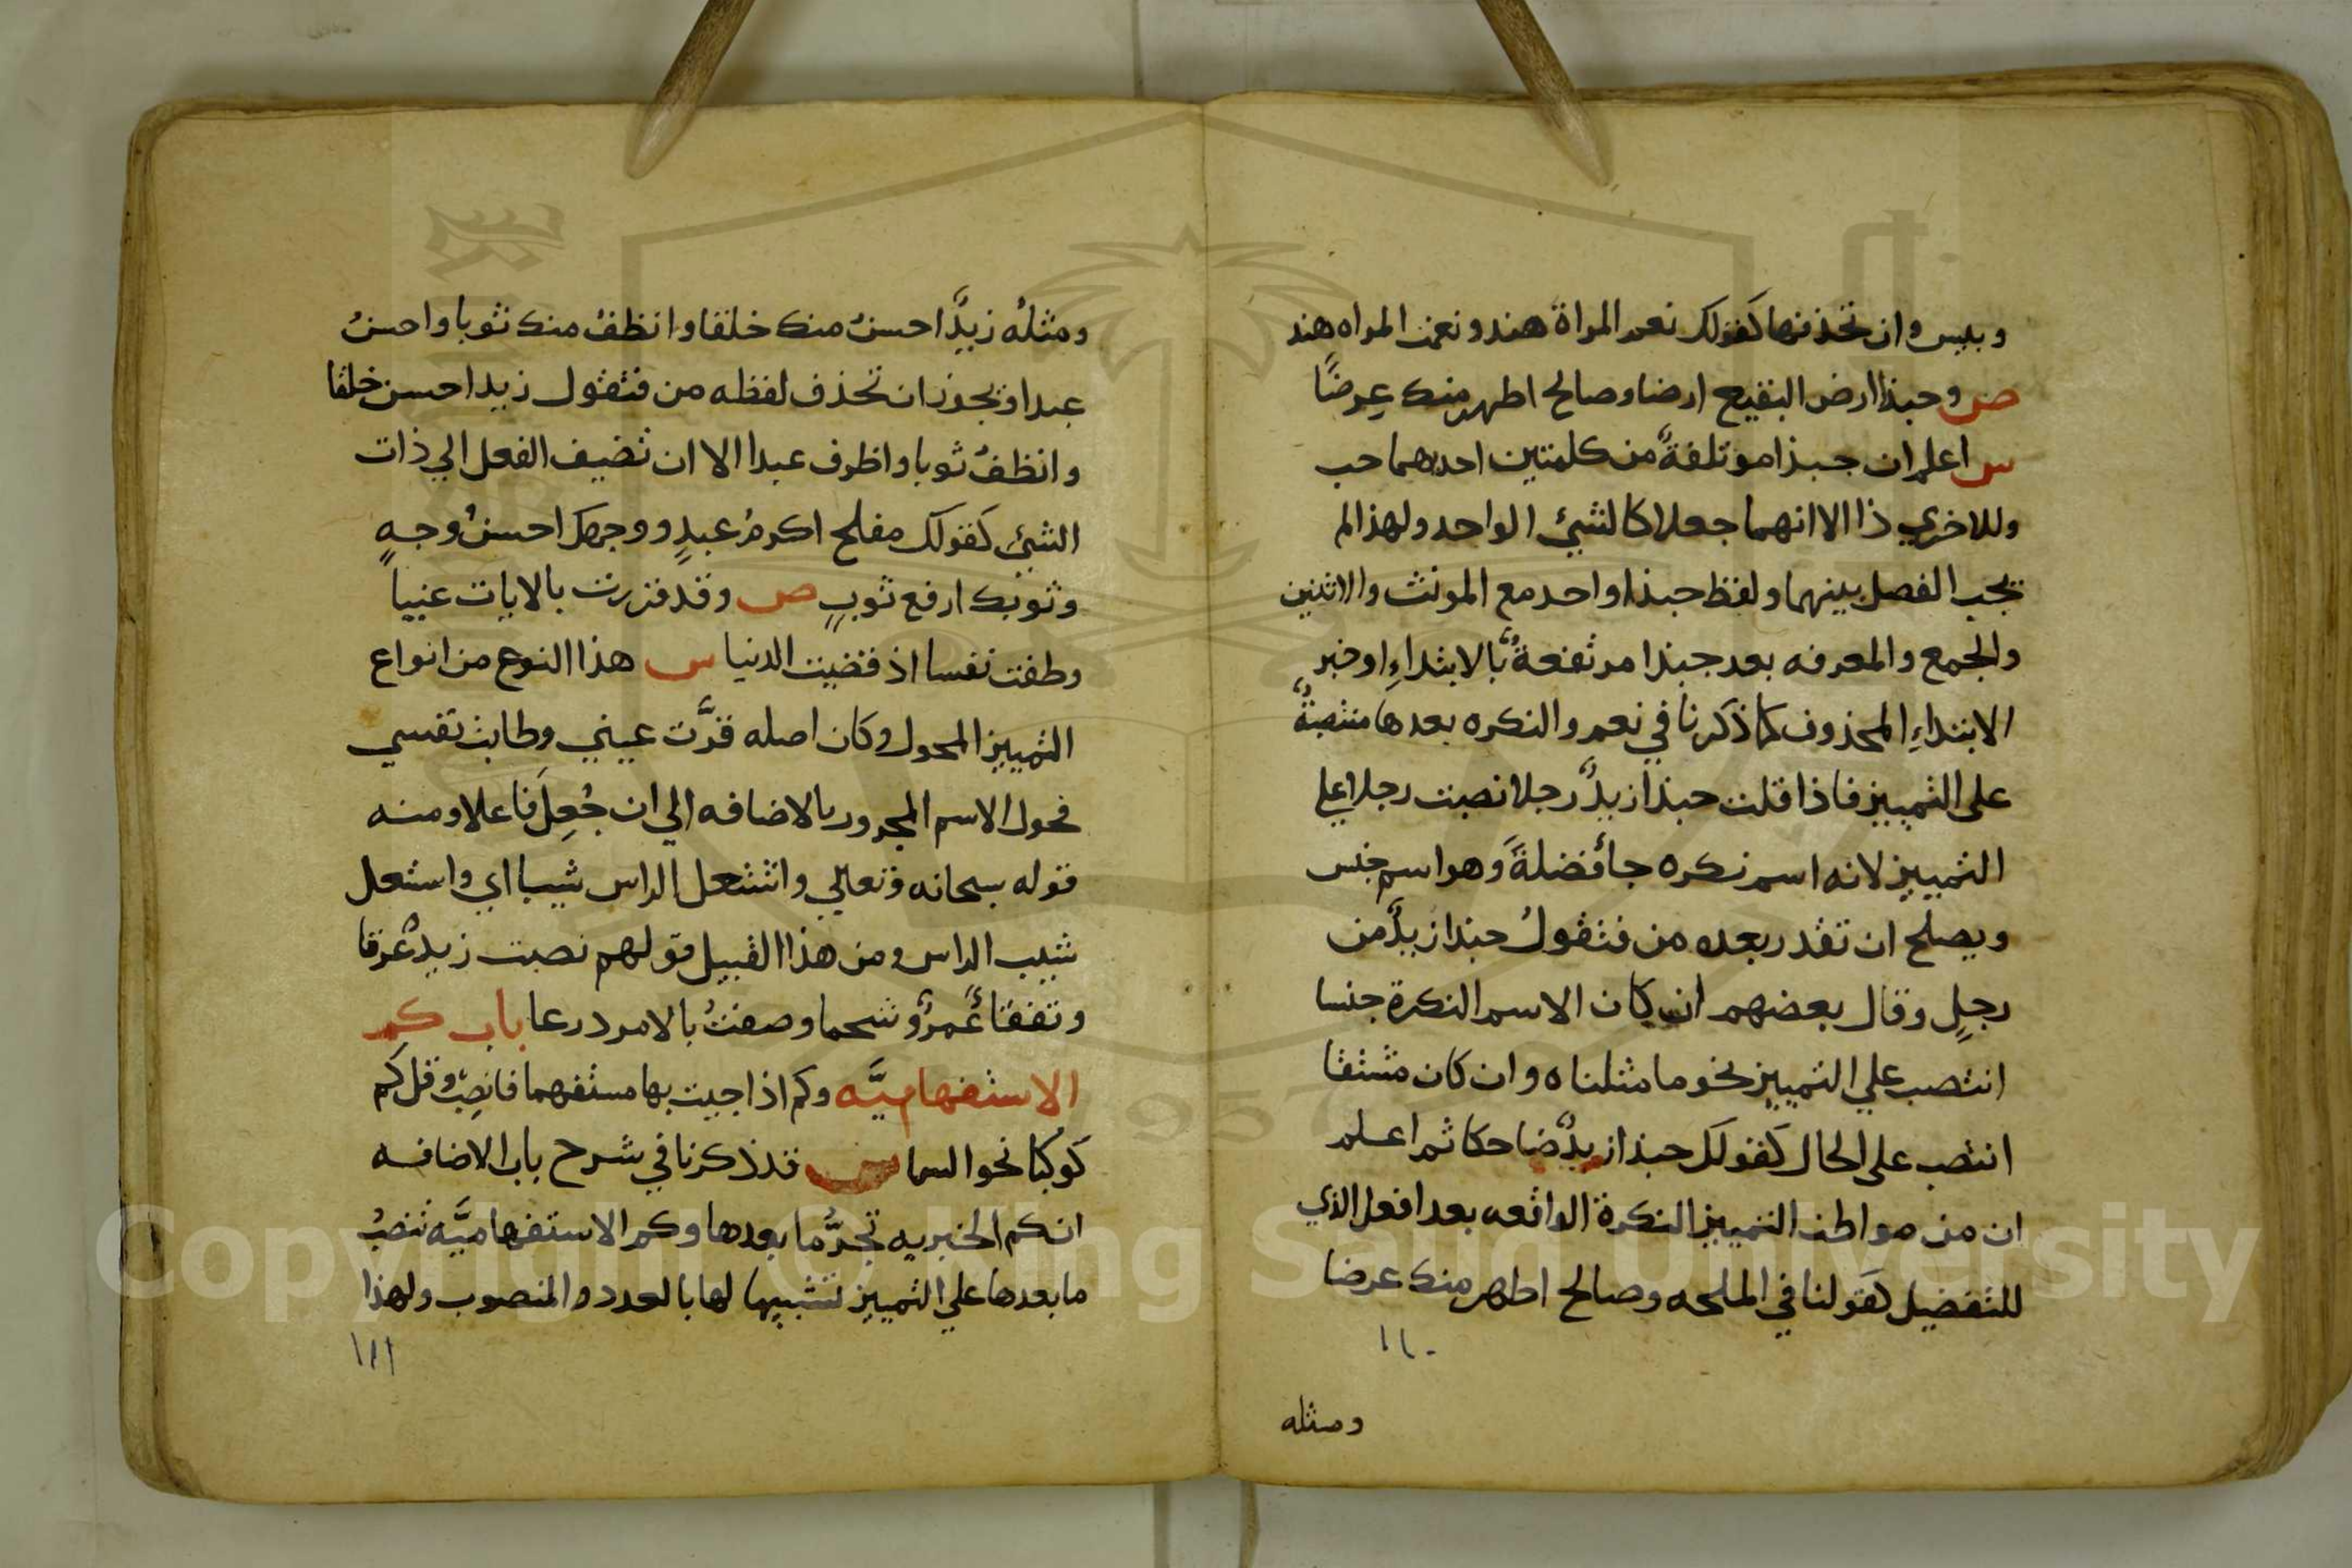 وبليس وان تحذفها كقولك نعم المراة هند ونعمت المراه هند
ص وحبذا ارض البقيع ارضا وصالح اطهر منك عِرضًا
س اعلم ان حبذا موتلفةٌ من كلمتين احدهما حب
وللاخري ذا الا انهما جعلا كالشيئ الواحد ولهذا لم
يجب الفصل بينهما ولفظ حبذا واحد مع المونث والاثنين
والجمع والمعرفه بعد حبذا مرتفعةٌ بالابتداءِ او خبر
الابتداءِ المحذوف كما ذكرنا في نعم والنكره بعدها منتصبةٌ
على التمييز فاذا قلت حبذا زيدٌ رجلا نصبت رجلا علي
التمييز لانه اسم نكره جأ فضلةً وهو اسم جنس
ويصلح ان تقدر بعده من فتقولُ حبذا زيدٌ من
رجلٍ وقال بعضهم ان كان الاسم النكرة جنسا
انتصب علي التمييز نحو ما مثلناه وان كان مشتقا
انتصب على الحال كقولك حبذا زيدٌ ضاحكا ثم اعلم
ان من مواطن التمييز النكرة الواقعه بعد افعل الذي
للتفضيل كقولنا في الملحه وصالح اطهر منك عرضا
١١٠
ومثله
ومثله زيدٌ احسنُ منك خلقا وانظفُ منك ثوبا واحسنُ
عبدا ويجوز ان تحذف لفظه من فتقول زيد احسن خلقا
وانظفُ ثوبا واظرف عبدا الا ان تضيف الفعل الي ذات
الشيئ كقولك مفلح اكرمُ عبدٍ ووجهك احسنُ وجهٍ
وثوبك ارفع ثوبٍ ص وقد قررت بالايات عنيا
وطفت نفسا اذ قضيت الدنيا س هذا النوع من انواع
التمييز المحول وكان اصله قرَّت عيني وطابت نفسي
فحول الاسم المجرور بالاضافه الي ان جُعِلَ فاعلا ومنه
قوله سبحانه وتعالي واشتعل الراس شيبا اي واشتعل
شيب الراس ومن هذا القبيل قولهم نصبت زيدٌ عرقا
وتفقأ عَمرٌو شحما وصفتُ بالامر درعا باب كم
الاستفهاميَّه وكم اذا جيت بها مستفهما فانصب وقل كم
كوكبا نحو السما س قد ذكرنا في شرح باب الاضافه
ان كم الخبريه تجرُّ ما بعدها وكم الاستفهاميَّه تنصبُ
ما بعدها علي التمييز تشبيها لها بالعدد والمنصوب ولهذا
١١١
Copyright © King Saud University
1957